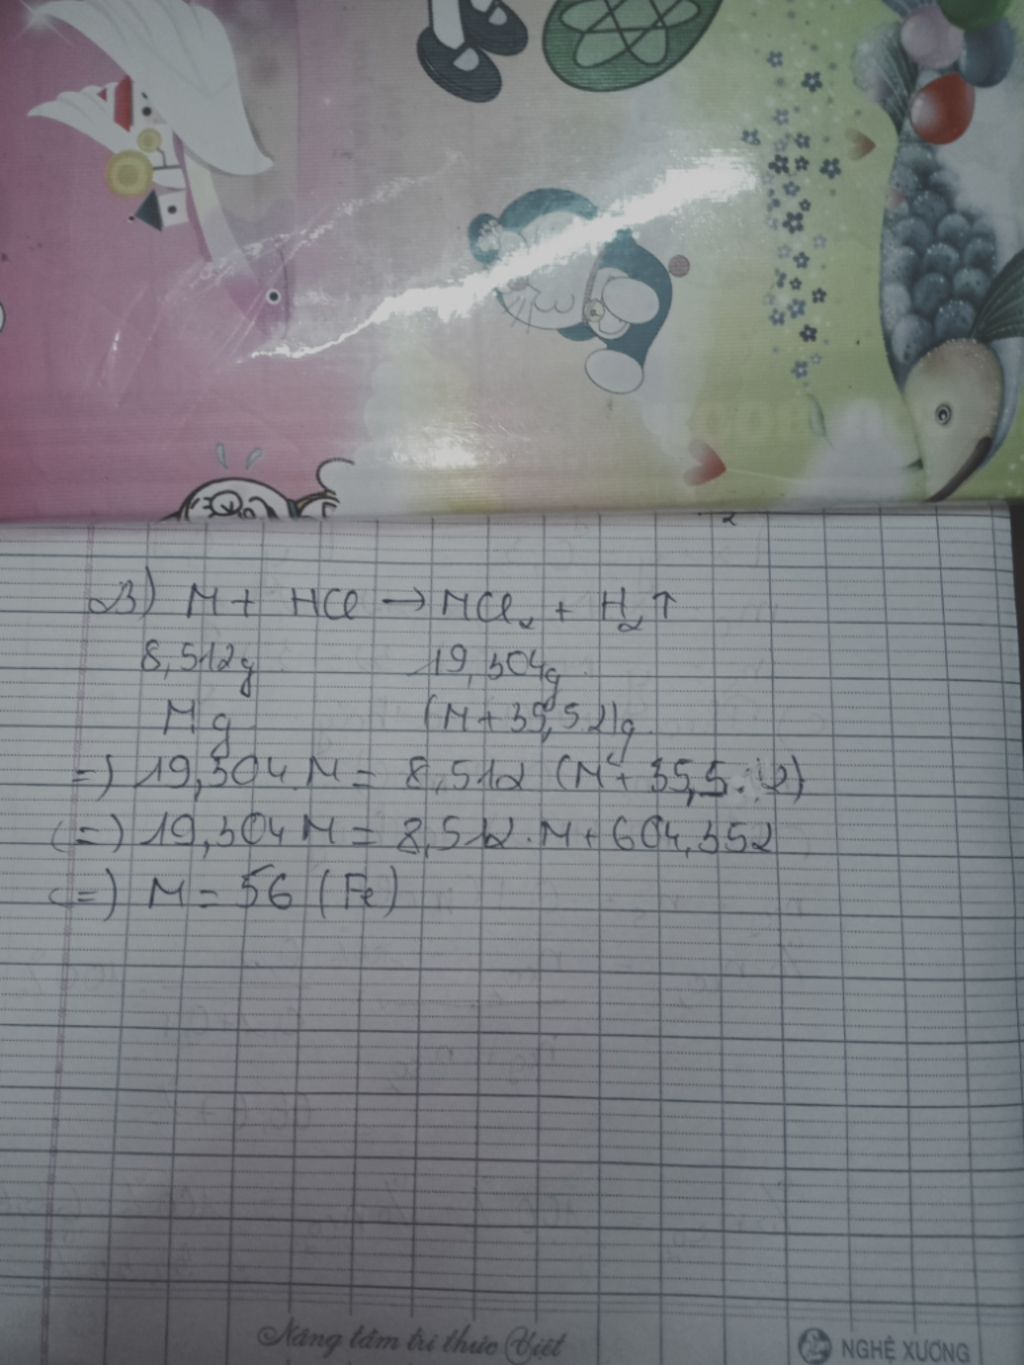 23) M + HCl → MCl₂ + H₂↑
8,512g 19,304g
M g (M+35,5.2)g
=) 19,304.M = 8,512 (M + 35,5.2)
(=) 19,304M = 8,512.M + 604,352
(=) M = 56 (Fe)
Nâng tầm trí thức Việt
NGHỆ XƯƠNG